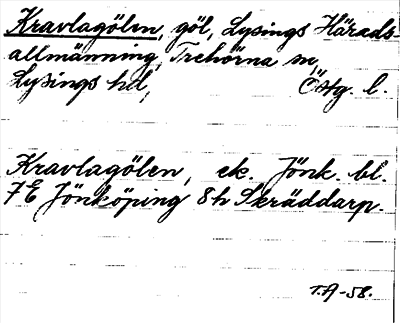 Kravlagölen, göl, Lysings Härads-
allmänning, Trehörna sn,
Lysings hd, Östg. l.
Kravlagölen, ek. Jönk. bl.
7E Jönköping 8h Skräddarp.
T.A-58.